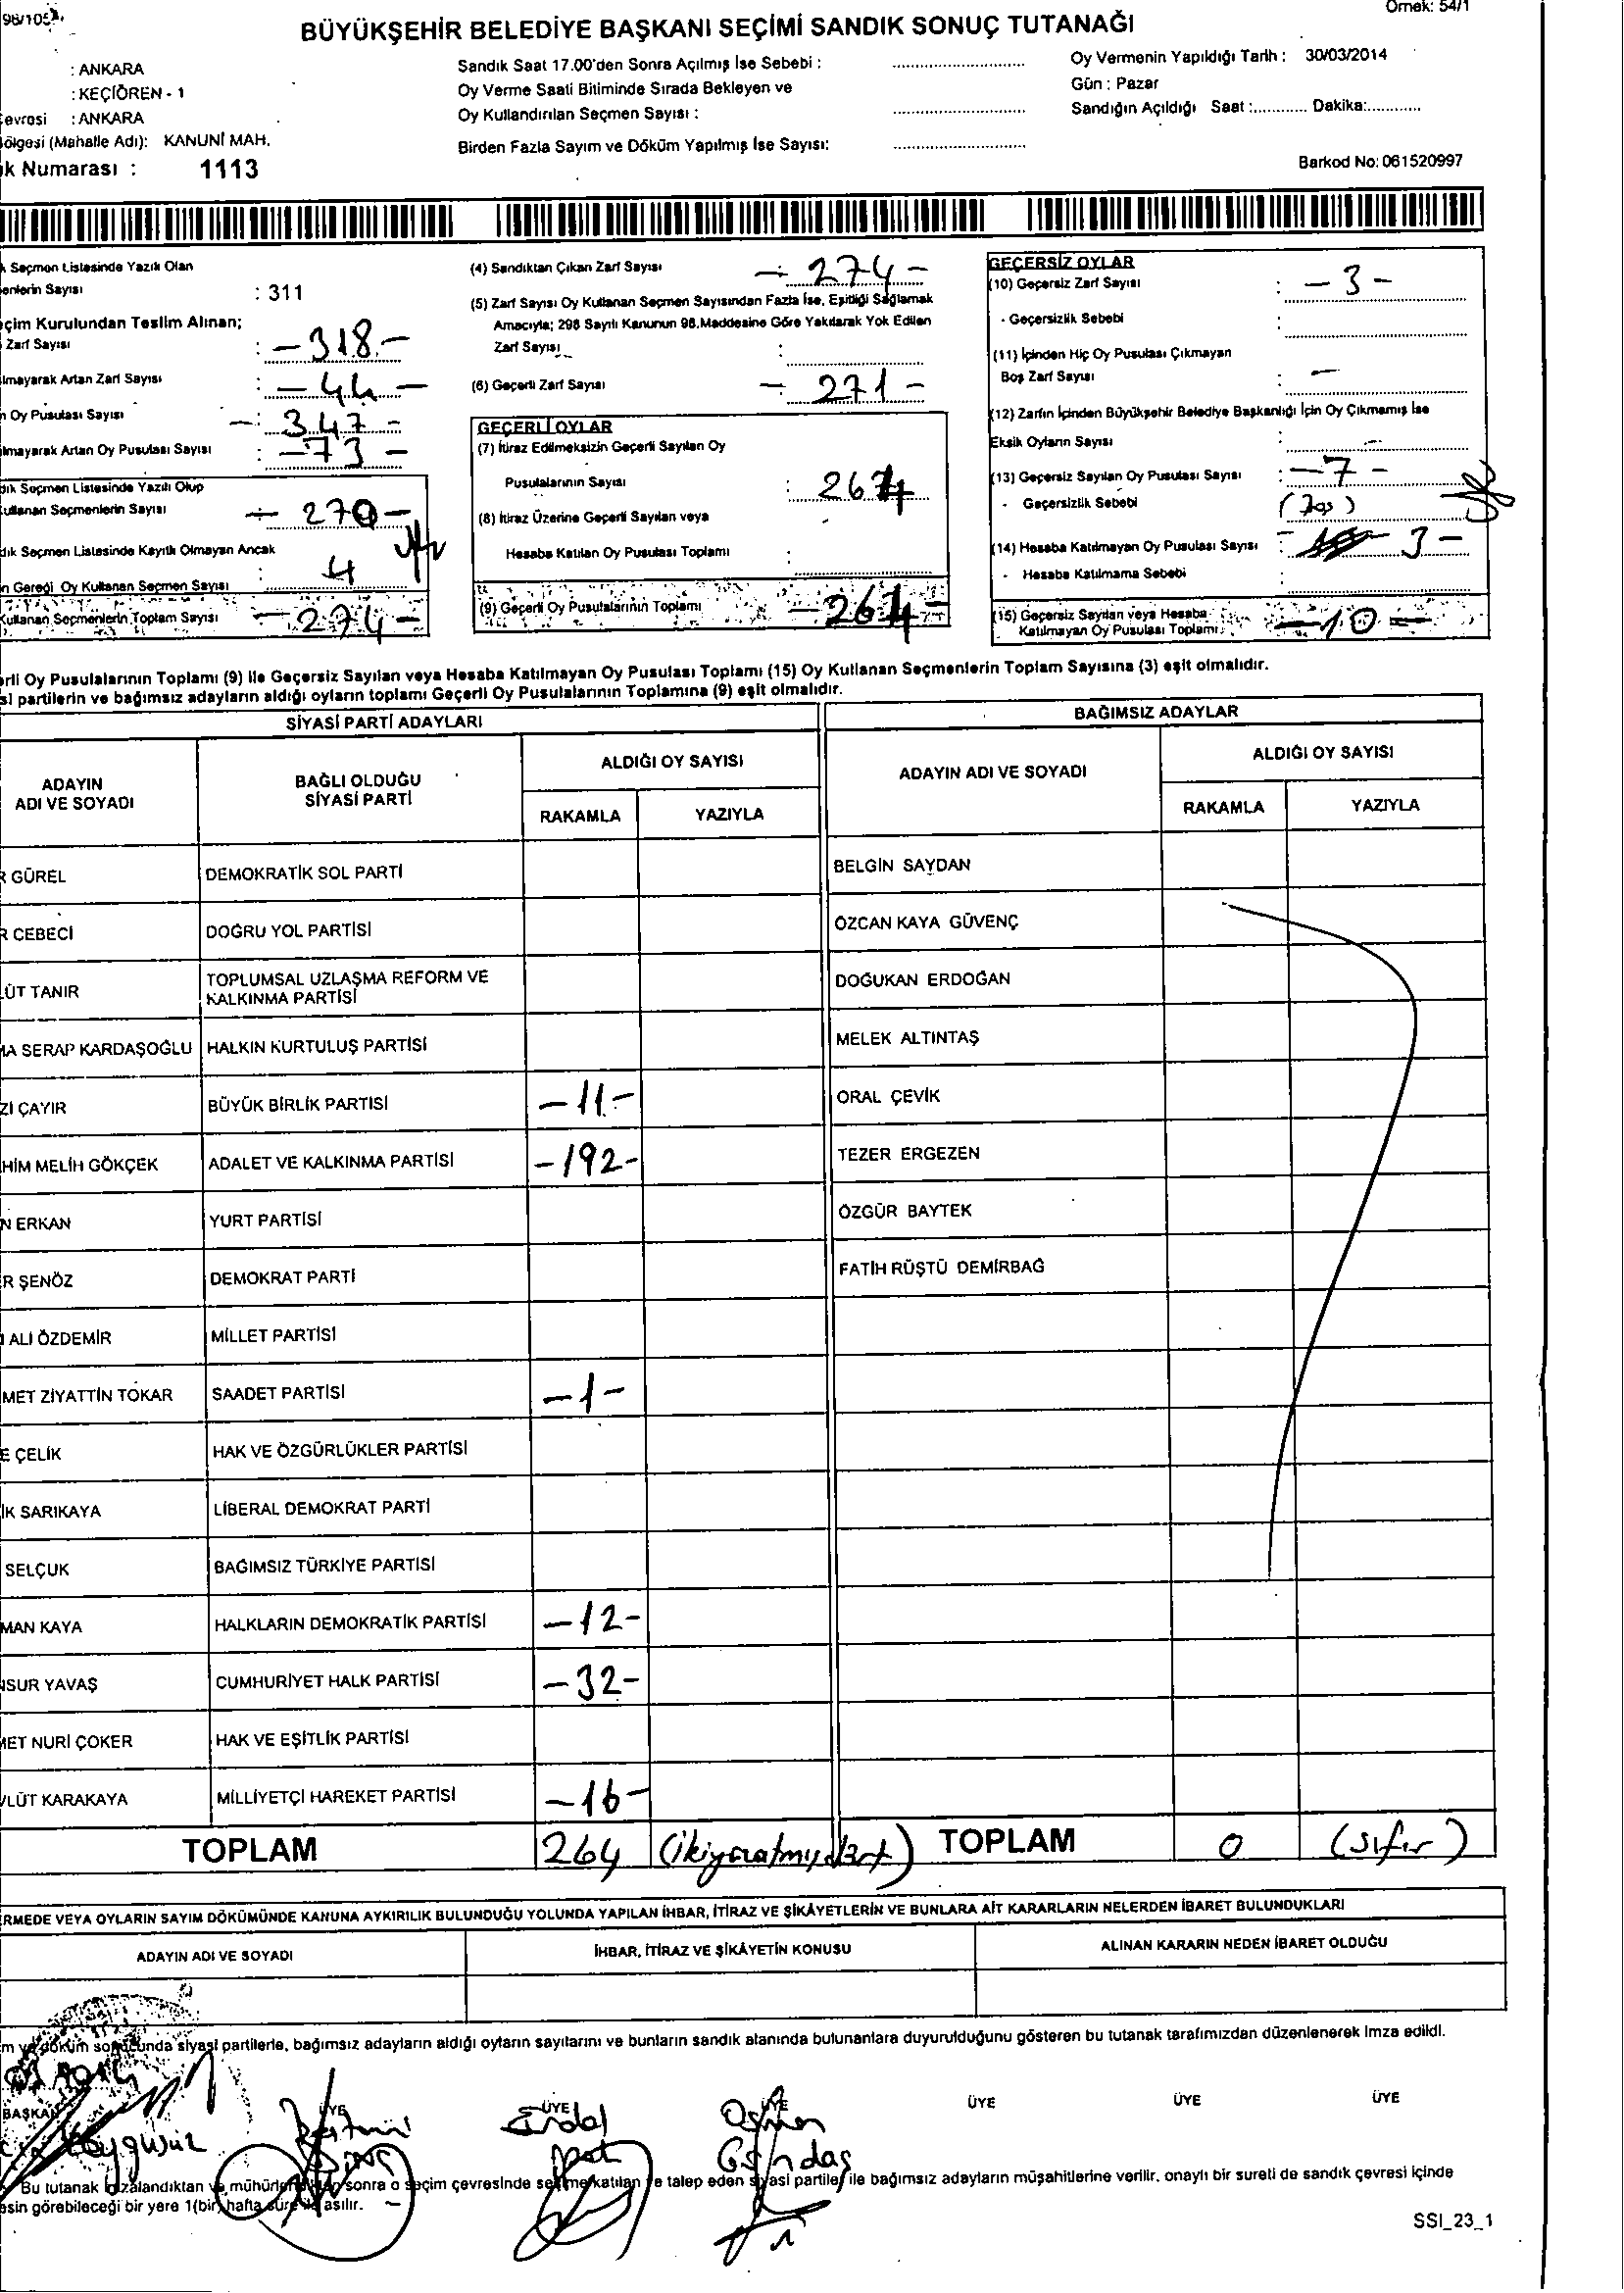 98/105
Örnek: 54/1
BÜYÜKŞEHİR BELEDİYE BAŞKANI SEÇİMİ SANDIK SONUÇ TUTANAĞI
: ANKARA
: KEÇİÖREN - 1
Çevresi : ANKARA
Bölgesi (Mahalle Adı): KANUNİ MAH.
k Numarası : 1113
Sandık Saat 17.00'den Sonra Açılmış İse Sebebi :
Oy Verme Saati Bitiminde Sırada Bekleyen ve
Oy Kullandırılan Seçmen Sayısı :
Birden Fazla Sayım ve Döküm Yapılmış İse Sayısı:
Oy Vermenin Yapıldığı Tarih : 30/03/2014
Gün : Pazar
Sandığın Açıldığı Saat :............ Dakika:............
Barkod No: 061520997
k Seçmen Listesinde Yazılı Olan
enlerin Sayısı : 311
çim Kurulundan Teslim Alınan;
Zarf Sayısı : -318-
lmayarak Artan Zarf Sayısı : -44-
n Oy Pusulası Sayısı -: 347-
lmayarak Artan Oy Pusulası Sayısı : -73-
dık Seçmen Listesinde Yazılı Olup
ullanan Seçmenlerin Sayısı -270-
dık Seçmen Listesinde Kayıtlı Olmayan Ancak
n Gereği Oy Kullanan Seçmen Sayısı : 4
Kullanan Seçmenlerin Toplam Sayısı -274-
(4) Sandıktan Çıkan Zarf Sayısı -274-
(5) Zarf Sayısı Oy Kullanan Seçmen Sayısından Fazla İse, Eşitliği Sağlamak
Amacıyla; 298 Sayılı Kanunun 98.Maddesine Göre Yakılarak Yok Edilen
Zarf Sayısı :
(6) Geçerli Zarf Sayısı -271-
GEÇERLİ OYLAR
(7) İtiraz Edilmeksizin Geçerli Sayılan Oy
Pusulalarının Sayısı : 264
(8) İtiraz Üzerine Geçerli Sayılan veya
Hesaba Katılan Oy Pusulası Toplamı :
(9) Geçerli Oy Pusulalarının Toplamı : -264-
GEÇERSİZ OYLAR
(10) Geçersiz Zarf Sayısı : -3-
- Geçersizlik Sebebi :
(11) İçinden Hiç Oy Pusulası Çıkmayan
Boş Zarf Sayısı : -
(12) Zarfın İçinden Büyükşehir Belediye Başkanlığı İçin Oy Çıkmamış İse
Eksik Oyların Sayısı : -
(13) Geçersiz Sayılan Oy Pusulası Sayısı : -7-
- Geçersizlik Sebebi
(14) Hesaba Katılmayan Oy Pusulası Sayısı : 3-
- Hesaba Katılmama Sebebi :
(15) Geçersiz Sayılan veya Hesaba
Katılmayan Oy Pusulası Toplamı : -10-
rli Oy Pusulalarının Toplamı (9) ile Geçersiz Sayılan veya Hesaba Katılmayan Oy Pusulası Toplamı (15) Oy Kullanan Seçmenlerin Toplam Sayısına (3) eşit olmalıdır.
si partilerin ve bağımsız adayların aldığı oyların toplamı Geçerli Oy Pusulalarının Toplamına (9) eşit olmalıdır.
SİYASİ PARTİ ADAYLARI
BAĞIMSIZ ADAYLAR
ADAYIN
ADI VE SOYADI
BAĞLI OLDUĞU
SİYASİ PARTİ
ALDIĞI OY SAYISI
RAKAMLA YAZIYLA
ADAYIN ADI VE SOYADI
ALDIĞI OY SAYISI
RAKAMLA YAZIYLA
R GÜREL DEMOKRATİK SOL PARTİ BELGİN SAYDAN
R CEBECİ DOĞRU YOL PARTİSİ ÖZCAN KAYA GÜVENÇ
LÜT TANIR TOPLUMSAL UZLAŞMA REFORM VE
KALKINMA PARTİSİ DOĞUKAN ERDOĞAN
MA SERAP KARDAŞOĞLU HALKIN KURTULUŞ PARTİSİ MELEK ALTINTAŞ
Zİ ÇAYIR BÜYÜK BİRLİK PARTİSİ -11- ORAL ÇEVİK
HİM MELİH GÖKÇEK ADALET VE KALKINMA PARTİSİ -192- TEZER ERGEZEN
N ERKAN YURT PARTİSİ ÖZGÜR BAYTEK
R ŞENÖZ DEMOKRAT PARTİ FATİH RÜŞTÜ DEMİRBAĞ
ALİ ÖZDEMİR MİLLET PARTİSİ
MET ZİYATTİN TOKAR SAADET PARTİSİ -1-
E ÇELİK HAK VE ÖZGÜRLÜKLER PARTİSİ
İK SARIKAYA LİBERAL DEMOKRAT PARTİ
SELÇUK BAĞIMSIZ TÜRKİYE PARTİSİ
MAN KAYA HALKLARIN DEMOKRATİK PARTİSİ -12-
NSUR YAVAŞ CUMHURİYET HALK PARTİSİ -32-
MET NURİ ÇOKER HAK VE EŞİTLİK PARTİSİ
VLÜT KARAKAYA MİLLİYETÇİ HAREKET PARTİSİ -16-
TOPLAM 264 (ikiyüzatmışdört) TOPLAM 0 (sıfır)
ERMEDE VEYA OYLARIN SAYIM DÖKÜMÜNDE KANUNA AYKIRILIK BULUNDUĞU YOLUNDA YAPILAN İHBAR, İTİRAZ VE ŞİKÂYETLERİN VE BUNLARA AİT KARARLARIN NELERDEN İBARET BULUNDUKLARI
ADAYIN ADI VE SOYADI İHBAR, İTİRAZ VE ŞİKÂYETİN KONUSU ALINAN KARARIN NEDEN İBARET OLDUĞU
m ve döküm sonucunda siyasi partilerle, bağımsız adayların aldığı oyların sayılarını ve bunların sandık alanında bulunanlara duyurulduğunu gösteren bu tutanak tarafımızdan düzenlenerek imza edildi.
BAŞKAN ÜYE ÜYE ÜYE ÜYE ÜYE ÜYE
Erdal Osman
Bu tutanak imzalandıktan ve mühürlendikten sonra o seçim çevresinde seçime katılan ve talep eden siyasi partiler ile bağımsız adayların müşahitlerine verilir, onaylı bir sureti de sandık çevresi içinde
esin görebileceği bir yere 1(bir) hafta süre ile asılır.
SSI_23_1